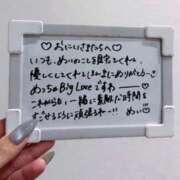 ♡おにいさまたちへ♡
いつも、めいのことを見ててくれて、
優しくしてくれてほんまにめりがとう〜!
めっちゃBig Loveですわー♡
これからも、一緒に素敵な時間を
すごせるように頑張るね!♡
めい♡